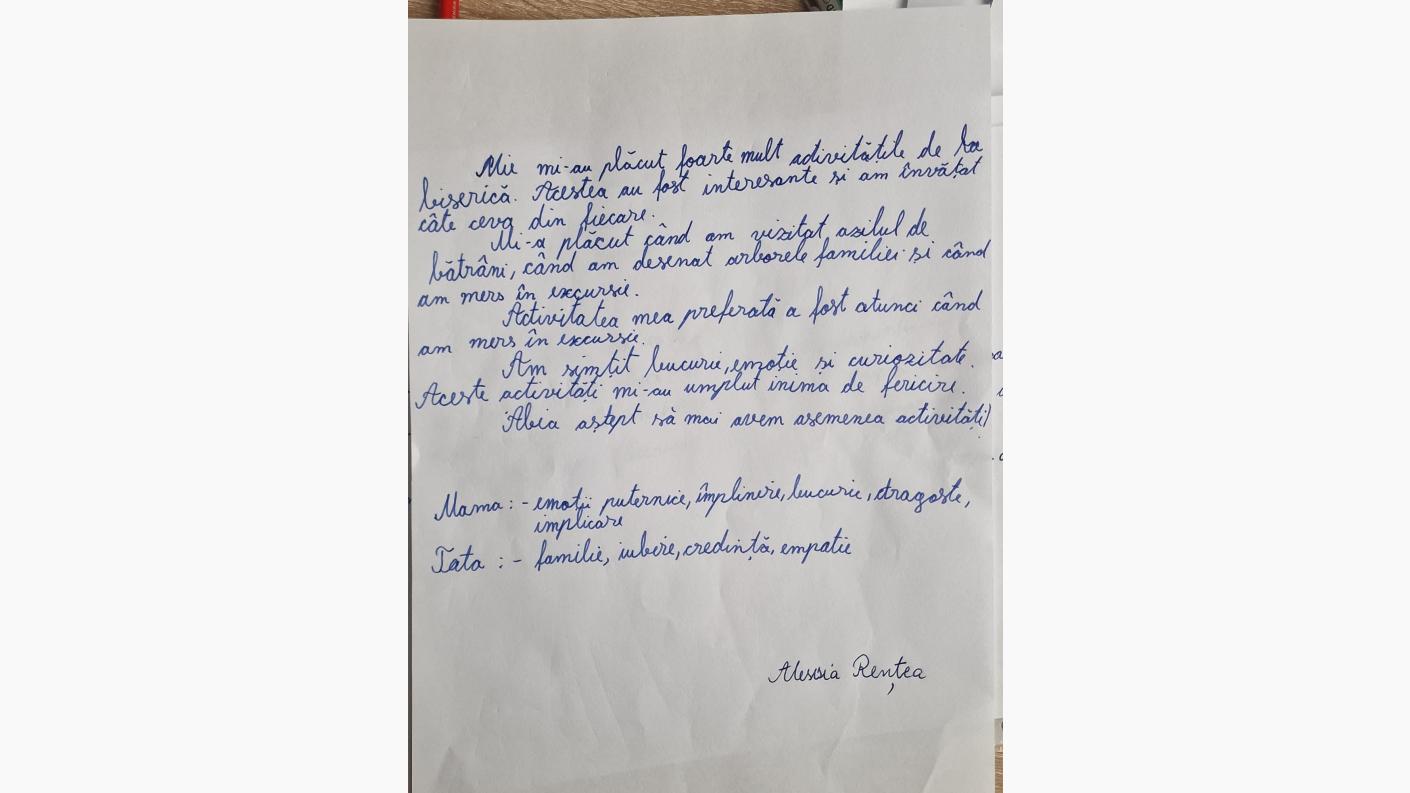 Mie mi-au plăcut foarte mult activitățile de la
biserică. Acestea au fost interesante și am învățat
câte ceva din fiecare.
Mi-a plăcut când am vizitat azilul de
bătrâni, când am desenat arborele familiei și când
am mers în excursie.
Activitatea mea preferată a fost atunci când
am mers în excursie.
Am simțit bucurie, emoție și curiozitate.
Aceste activități mi-au umplut inima de fericire.
Abia aștept să mai avem asemenea activități!
Mama : - emoții puternice, împlinire, bucurie, dragoste,
implicare
Tata : - familie, iubire, credință, empatie
Alessia Rențea